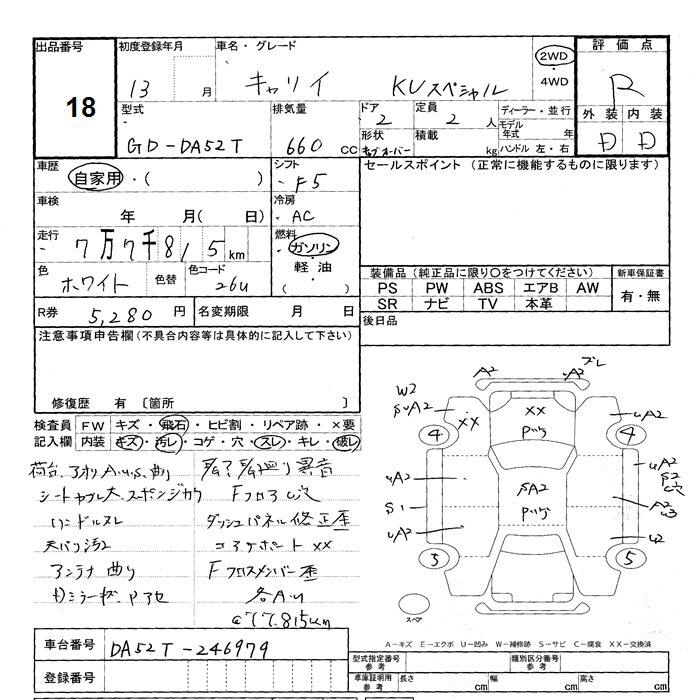 出品番号 18
初度登録年月 13 月
車名・グレード キャリイ KUスペシャル
2WD・4WD
評価点 R
外装 D 内装 D
型式 GD-DA52T
排気量 660 cc
ドア 2
定員 2 人
形状
積載 kg
ディーラー・並行
モデル年式 年
ハンドル 左・右
車歴 自家用・( )
シフト F5
セールスポイント (正常に機能するものに限ります)
車検 年 月(日)
冷房 AC
走行 7万7千815km
燃料 ガソリン・軽油( )
色 ホワイト 色替 色コード 26U
装備品 (純正品に限り○をつけてください)
新車保証書
PS PW ABS エアB AW
SR ナビ TV 本革
有・無
R券 5,280 円 名変期限 月 日
後日品
注意事項申告欄 (不具合内容等は具体的に記入して下さい)
修復歴 有 〔箇所 〕
検査員記入欄
FW キズ・飛石・ヒビ割・リペア跡・×要
内装 キズ・汚レ・コゲ・穴・スレ・キレ・破レ
荷台、アオリA.U.S.曲り
異音
FフロアC穴
ハンドルスレ
ダッシュパネル修正歪
天バリ汚2
コアサポート XX
アンテナ曲り
Fクロスメンバー歪
各A.U
@77.815km
A2 A2 ブレ
W2
SUA2
XX
XX
Pツキ
UA2
4 4
UA2
S1
UA2
SA2
Pツキ
UA2
S2
C穴
U2
3 5
スペア
A-キズ E-エクボ U-凹み W-補修跡 S-サビ C-腐食 XX-交換済
車台番号 DA52T-246979
登録番号
型式指定番号 参考
類別区分番号 参考
車庫証明用 参考 長さ cm 幅 cm 高さ cm